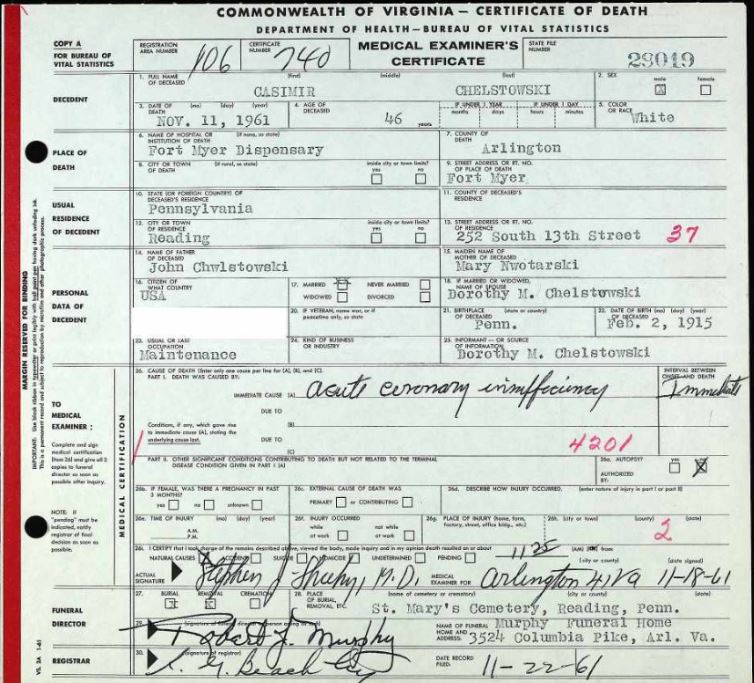 COMMONWEALTH OF VIRGINIA — CERTIFICATE OF DEATH
DEPARTMENT OF HEALTH—BUREAU OF VITAL STATISTICS
COPY A
FOR BUREAU OF
VITAL STATISTICS
REGISTRATION AREA NUMBER 106
CERTIFICATE NUMBER 740
MEDICAL EXAMINER'S CERTIFICATE
STATE FILE NUMBER 29019
DECEDENT
1. FULL NAME OF DECEASED (first) (middle) (last)
CASIMIR CHELSTOWSKI
2. SEX male female
3. DATE OF DEATH (mo) (day) (year)
NOV. 11, 1961
4. AGE OF DECEASED 46 years
IF UNDER 1 YEAR months days
IF UNDER 1 DAY hours minutes
5. COLOR OR RACE White
PLACE OF DEATH
6. NAME OF HOSPITAL OR INSTITUTION OF DEATH (if none, so state)
Fort Myer Dispensary
7. COUNTY OF DEATH
Arlington
8. CITY OR TOWN OF DEATH (if rural, so state) inside city or town limits? yes no
9. STREET ADDRESS OR RT. NO. OF PLACE OF DEATH
Fort Myer
USUAL RESIDENCE OF DECEDENT
10. STATE (OR FOREIGN COUNTRY) OF DECEASED'S RESIDENCE
Pennsylvania
11. COUNTY OF DECEASED'S RESIDENCE
12. CITY OR TOWN OF RESIDENCE inside city or town limits? yes no
Reading
13. STREET ADDRESS OR RT. NO. OF RESIDENCE
252 South 13th Street 37
PERSONAL DATA OF DECEDENT
14. NAME OF FATHER OF DECEASED
John Chwlstowski
15. MAIDEN NAME OF MOTHER OF DECEASED
Mary Nwotarski
16. CITIZEN OF WHAT COUNTRY
USA
17. MARRIED NEVER MARRIED
WIDOWED DIVORCED
18. IF MARRIED OR WIDOWED, NAME OF SPOUSE
Dorothy M. Chelstowski
20. IF VETERAN, name war, or if peacetime only, so state
21. BIRTHPLACE (state or country)
Penn.
22. DATE OF BIRTH (mo) (day) (year)
Feb. 2, 1915
23. USUAL OR LAST OCCUPATION
Maintenance
24. KIND OF BUSINESS OR INDUSTRY
25. INFORMANT — OR SOURCE OF INFORMATION
Dorothy M. Chelstowski
MARGIN RESERVED FOR BINDING
MEDICAL CERTIFICATION
TO MEDICAL EXAMINER:
Complete and sign medical certification (Item 26) and give all 3 copies to funeral director as soon as possible after inquiry.
NOTE: If "pending" must be indicated, notify registrar of final decision as soon as possible.
26. CAUSE OF DEATH (Enter only one cause per line for (A), (B), and (C).
PART I. DEATH WAS CAUSED BY:
INTERVAL BETWEEN ONSET AND DEATH
IMMEDIATE CAUSE (A) acute coronary insufficiency Immediate
DUE TO
Conditions, if any, which gave rise to immediate cause (A), stating the underlying cause last.
(B)
DUE TO
(C)
4201
PART II. OTHER SIGNIFICANT CONDITIONS CONTRIBUTING TO DEATH BUT NOT RELATED TO THE TERMINAL DISEASE CONDITION GIVEN IN PART I (A)
26a. AUTOPSY? yes no
AUTHORIZED BY:
26b. IF FEMALE, WAS THERE A PREGNANCY IN PAST 3 MONTHS? yes no unknown
26c. EXTERNAL CAUSE OF DEATH WAS PRIMARY or CONTRIBUTING
26d. DESCRIBE HOW INJURY OCCURRED. (enter nature of injury in part I or part II)
26e. TIME OF INJURY (mo) (day) (year)
A.M.
P.M.
26f. INJURY OCCURRED while at work not while at work
26g. PLACE OF INJURY (home, farm, factory, street, office bldg., etc.)
26h. (city or town) (county) (state)
2
26i. I CERTIFY that I took charge of the remains described above, viewed the body, made inquiry and in my opinion death resulted on or about 11 25 (AM) from
NATURAL CAUSES ACCIDENT SUICIDE HOMICIDE UNDETERMINED PENDING
(city or county) (date signed)
ACTUAL SIGNATURE Stephen J Sheehy, M.D. MEDICAL EXAMINER FOR Arlington Va 11-18-61
FUNERAL DIRECTOR
27. BURIAL REMOVAL CREMATION
28. PLACE OF BURIAL, REMOVAL, ETC. (name of cemetery or crematory) (city or county) (state)
St. Mary's Cemetery, Reading, Penn.
29. (signature of funeral director)
Robert L. Murphy
NAME OF FUNERAL HOME AND ADDRESS: Murphy Funeral Home
3524 Columbia Pike, Arl. Va.
REGISTRAR
30. (signature of registrar)
DATE RECORD FILED: 11-22-61
VS. 2A 1-61